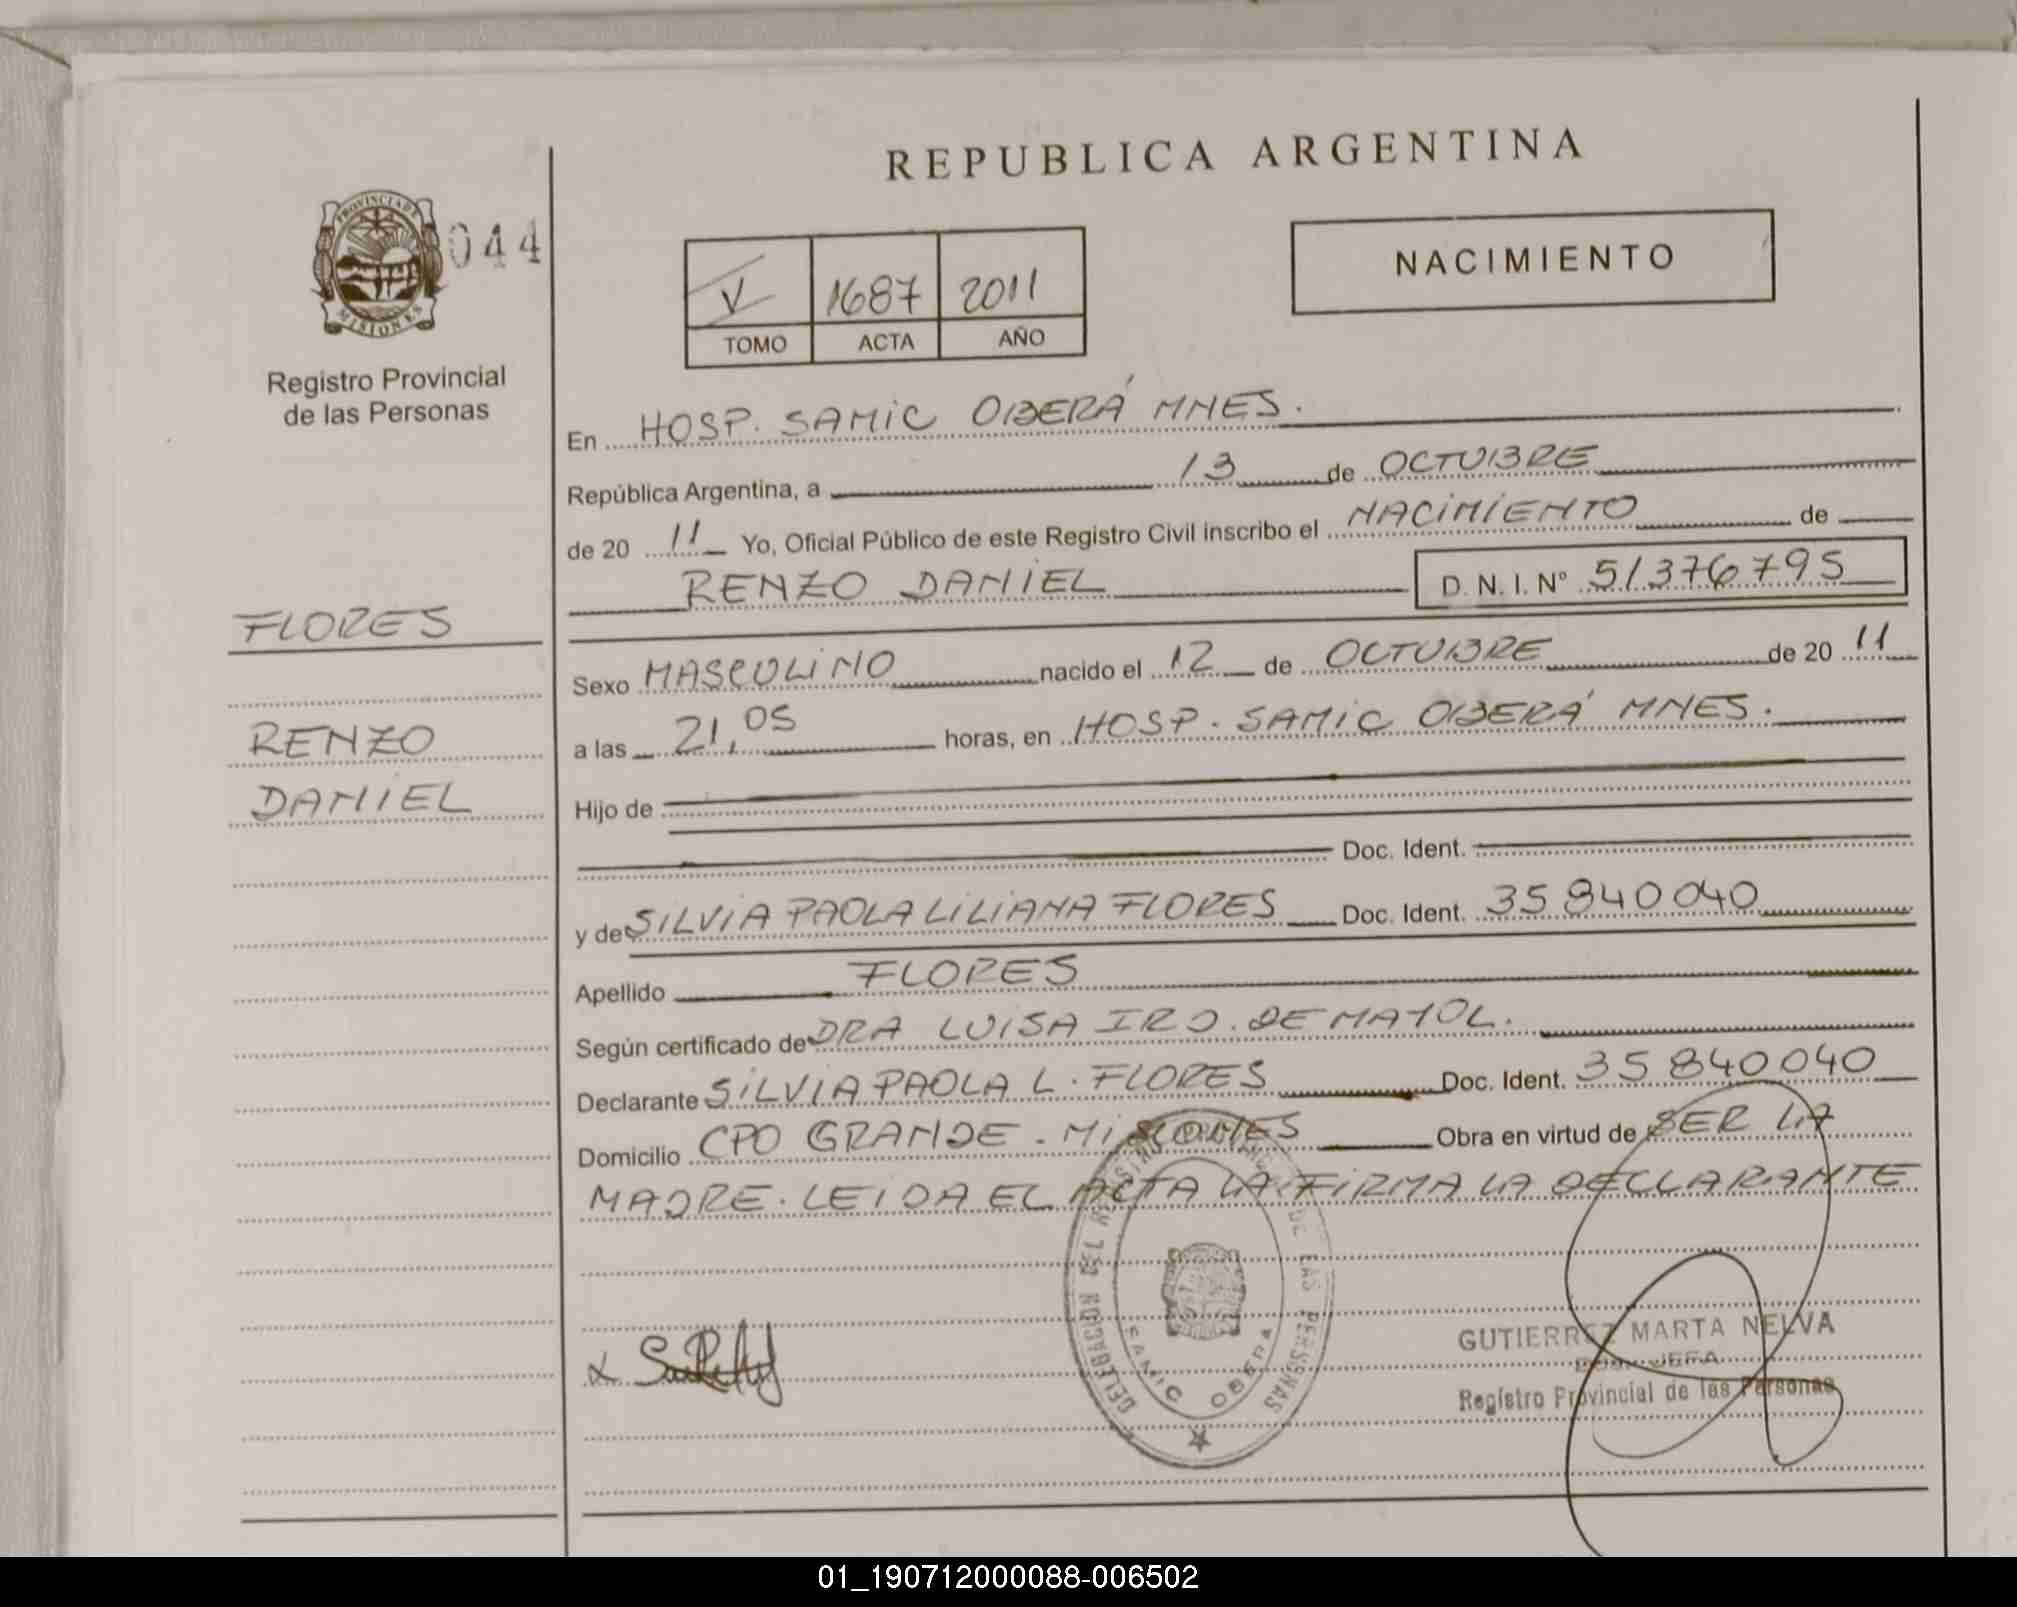 REPUBLICA ARGENTINA
PROVINCIA DE MISIONES
044
Registro Provincial
de las Personas
V 1687 2011
TOMO ACTA AÑO
NACIMIENTO
En HOSP. SAMIC OBERÁ MNES.
República Argentina, a 13 de OCTUBRE
de 20 11 Yo, Oficial Público de este Registro Civil inscribo el NACIMIENTO de
RENZO DANIEL D. N. I. Nº 51376795
FLORES
RENZO
DANIEL
Sexo MASCULINO nacido el 12 de OCTUBRE de 20 11
a las 21,05 horas, en HOSP. SAMIC OBERÁ MNES.
Hijo de
Doc. Ident.
y de SILVIA PAOLA LILIANA FLORES Doc. Ident. 35840040
Apellido FLORES
Según certificado de DRA LUISA IRJ. DE MAYOL.
Declarante SILVIA PAOLA L. FLORES Doc. Ident. 35840040
Domicilio CPO GRANDE - MISIONES Obra en virtud de SER LA
MADRE. LEIDA EL ACTA LA FIRMA LA DECLARANTE
DELEGACION DEL REGISTRO PROVINCIAL DE LAS PERSONAS
SAMIC OBERA
GUTIERREZ MARTA NELVA
JEFA
Registro Provincial de las Personas
01_190712000088-006502